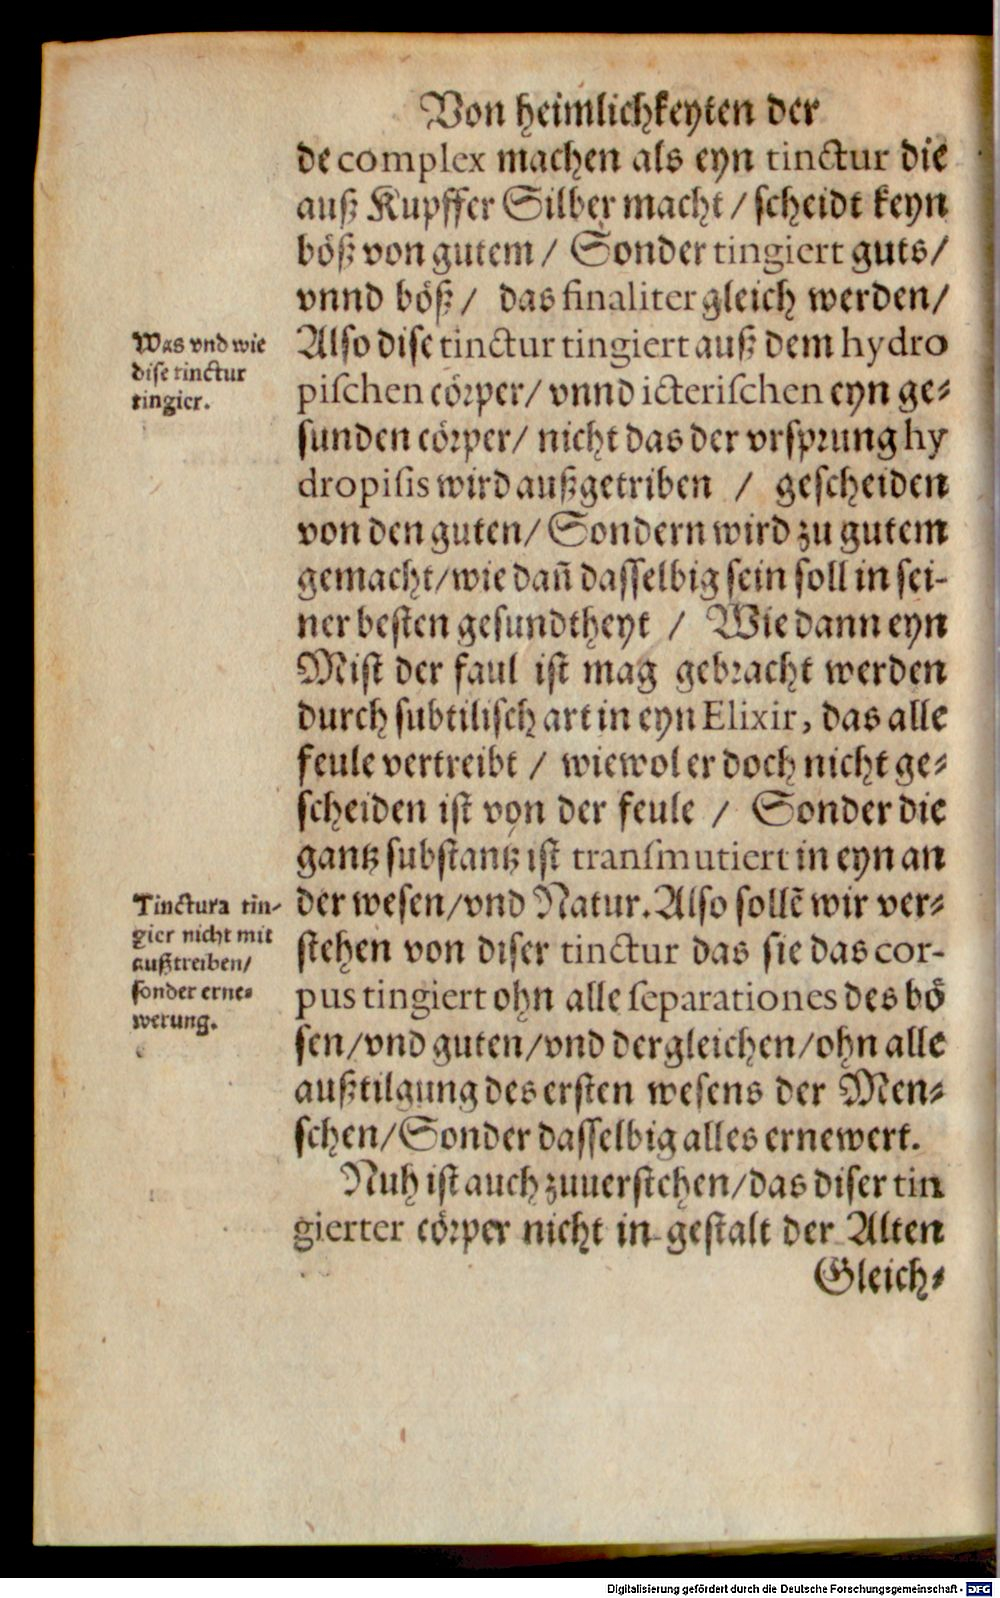 Von heimlichkeyten der
de complex machen als eyn tinctur die
auß Kupffer Silber macht / scheidt keyn
böß von gutem / Sonder tingiert guts /
vnnd böß / das finaliter gleich werden /
Was vnd wie
dise tinctur
tingier.
Also dise tinctur tingiert auß dem hydro
pischen cörper / vnnd icterischen eyn ge⸗
sunden cörper / nicht das der vrsprung hy
dropisis wird außgetriben / gescheiden
von den guten / Sondern wird zu gutem
gemacht / wie dañ dasselbig sein soll in sei-
ner besten gesundtheyt / Wie dann eyn
Mist der faul ist mag gebracht werden
durch subtilisch art in eyn Elixir, das alle
feule vertreibt / wiewol er doch nicht ge⸗
scheiden ist von der feule / Sonder die
gantz substantz ist transmutiert in eyn an
Tinctura tin-
gier nicht mit
außtreiben /
sonder erne⸗
werung.
der wesen / vnd Natur. Also sollẽ wir ver⸗
stehen von diser tinctur das sie das cor-
pus tingiert ohn alle separationes des bö
sen / vnd guten / vnd dergleichen / ohn alle
außtilgung des ersten wesens der Men⸗
schen / Sonder dasselbig alles ernewert.
Nuh ist auch zuuerstehen / das diser tin
gierter cörper nicht in gestalt der Alten
Gleich⸗
Digitalisierung gefördert durch die Deutsche Forschungsgemeinschaft - DFG